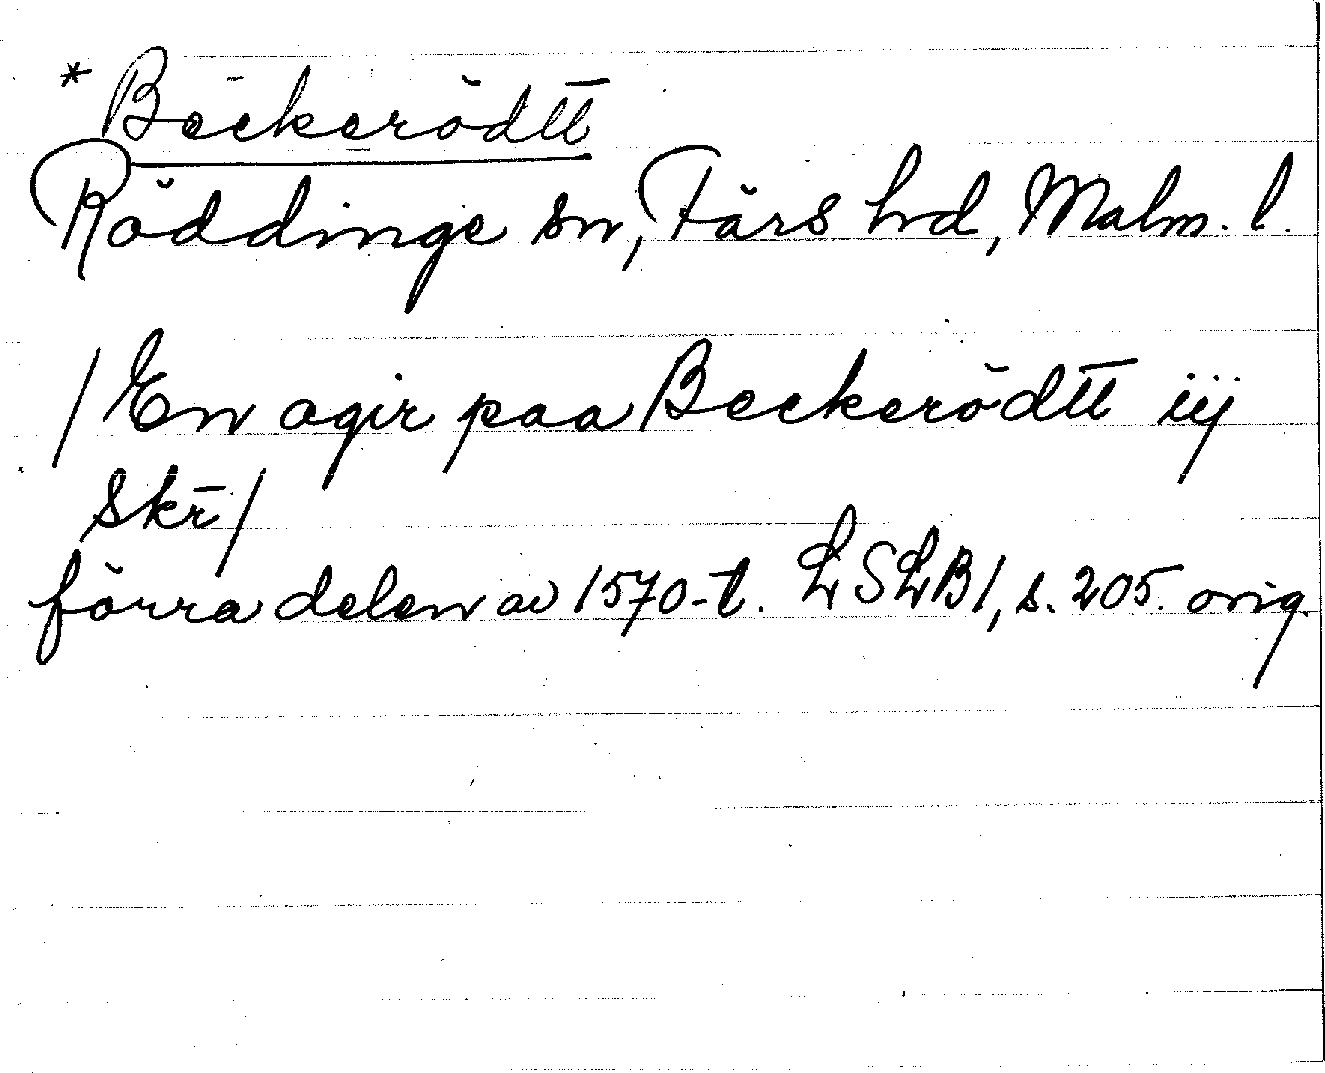 *Beckerödtt
Röddinge sn, Färs hd, Malm. l.
/En agir paa Beckerödtt iij
skr/
förra delen av 1570-t. LSLB1, s. 205. orig.